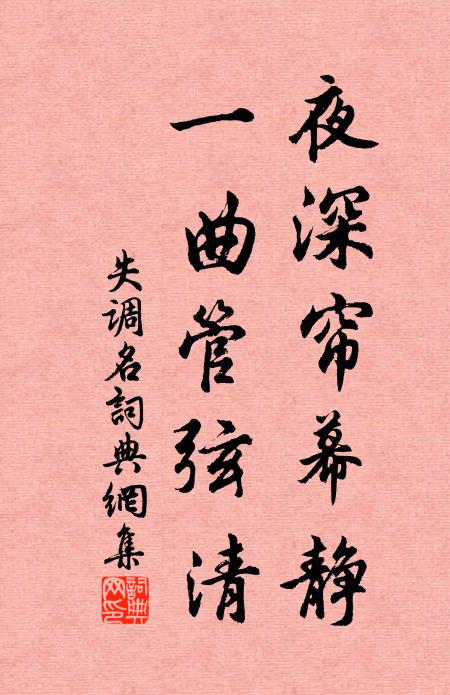 夜深帘幕静
一曲管弦清
失调名詞典網集
詞典网印